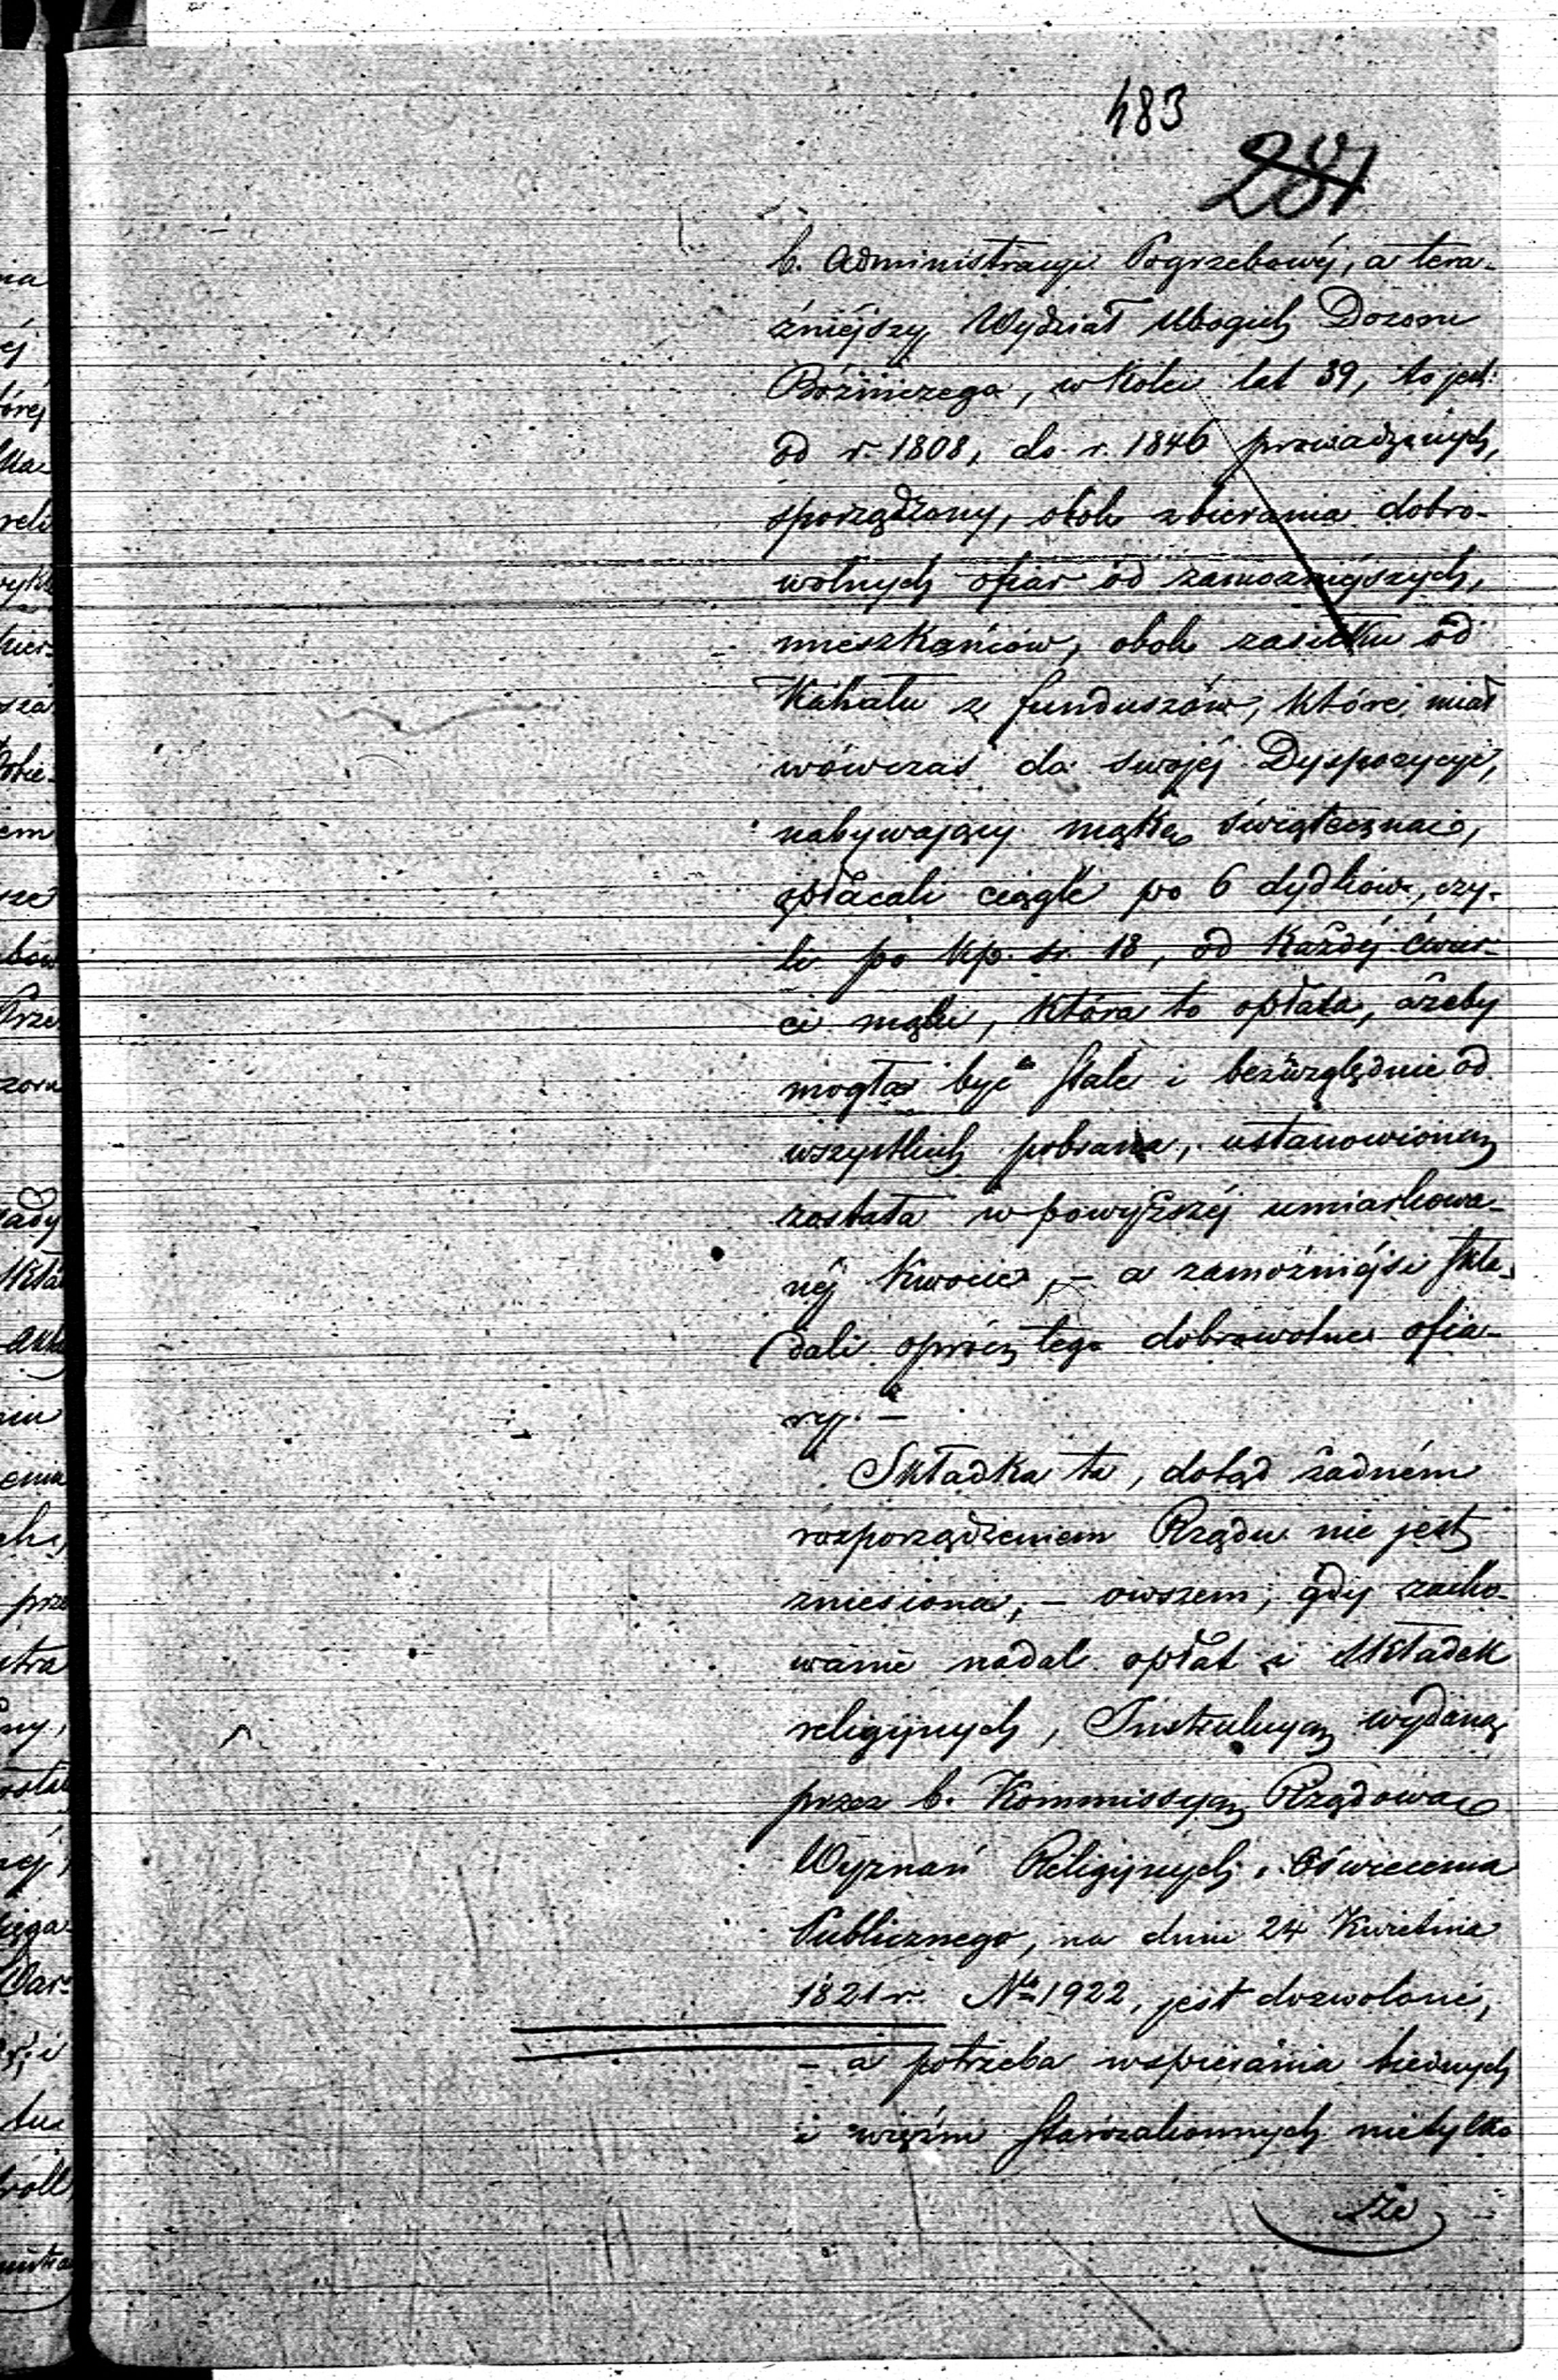 483
281
b. Administracyi Pogrzebowéj, a tera-
źniéjszy Wydział Ubogich Dozoru
Bóżniczego, w Kolei lat 39, to jest
od r. 1808, do r. 1846 prowadzonych,
sporządzony, obok zbierania dobro-
wolnych ofiar od zamożniéjszych,
mieszkańców, obok zasiłku od
Kahału z funduszów, które miał
wówczas do swojéj Dyspozycyi,
nabywający mąkę świąteczną,
opłacali ciągle po 6 dydków, czy-
li po kp. sr. 18, od Każdéj ćwier-
ci mąki, która to opłata, ażeby
mogła być stale i bezwzględnie od
wszystkich pobraną, ustanowioną
została w powyższéj umiarkowa-
néj Kwocie, – a zamożniéjsi skła-
dali oprócz tego dobrowolne ofia-
ry. –
Składka ta, dotąd żadném
rozporządzeniem Rządu nie jest
zniesiona, – owszem, gdy zacho-
wanie nadal opłat i składek
religijnych, Instrukcyą wydaną
przez b. Kommissyą Rządową
Wyznań Religijnych i Oświecenia
Publicznego, na dniu 24 Kwietnia
1821 r. No 1922, jest dozwolone,
– a potrzeba wspierania biednych
i więźni starozakonnych nietylko
że